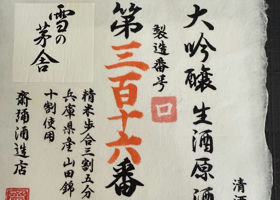 清酒
大吟醸 生酒原酒
製造番号
第三百十六番
精米歩合三割五分
兵庫県産山田錦
十割使用
齋彌酒造店
雪の茅舎